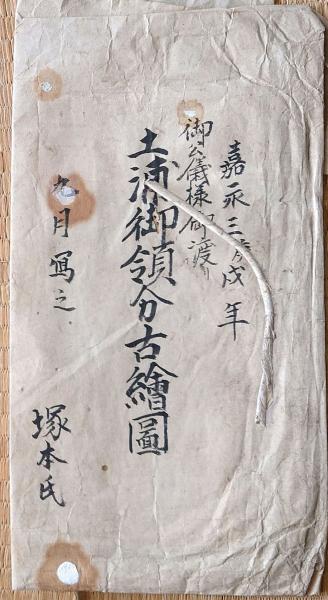 嘉永三庚戌年
御公儀様御渡り
土浦御領分古繪圖
九月寫之
塚本氏